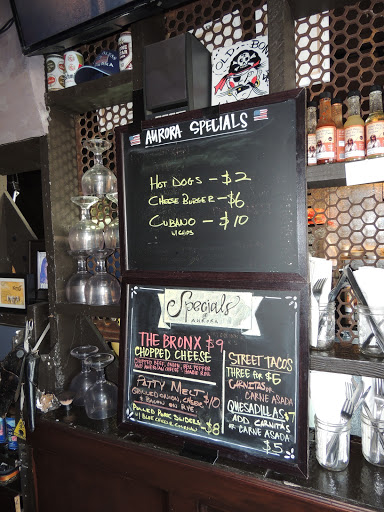 OLD BON
AURORA SPECIALS
HOT DOGS — $2
CHEESE BURGER — $6
CUBANO — $10
Specials
AURORA
THE BRONX $9
CHOPPED CHEESE
PATTY MELT $10
GRILLED ONION, CHEESE
& BACON ON RYE
PULLED PORK SLIDERS
$8
STREET TACOS
THREE FOR $6
CARNITAS
OR CARNE ASADA
QUESADILLAS $7
ADD CARNITAS
OR CARNE ASADA
$5